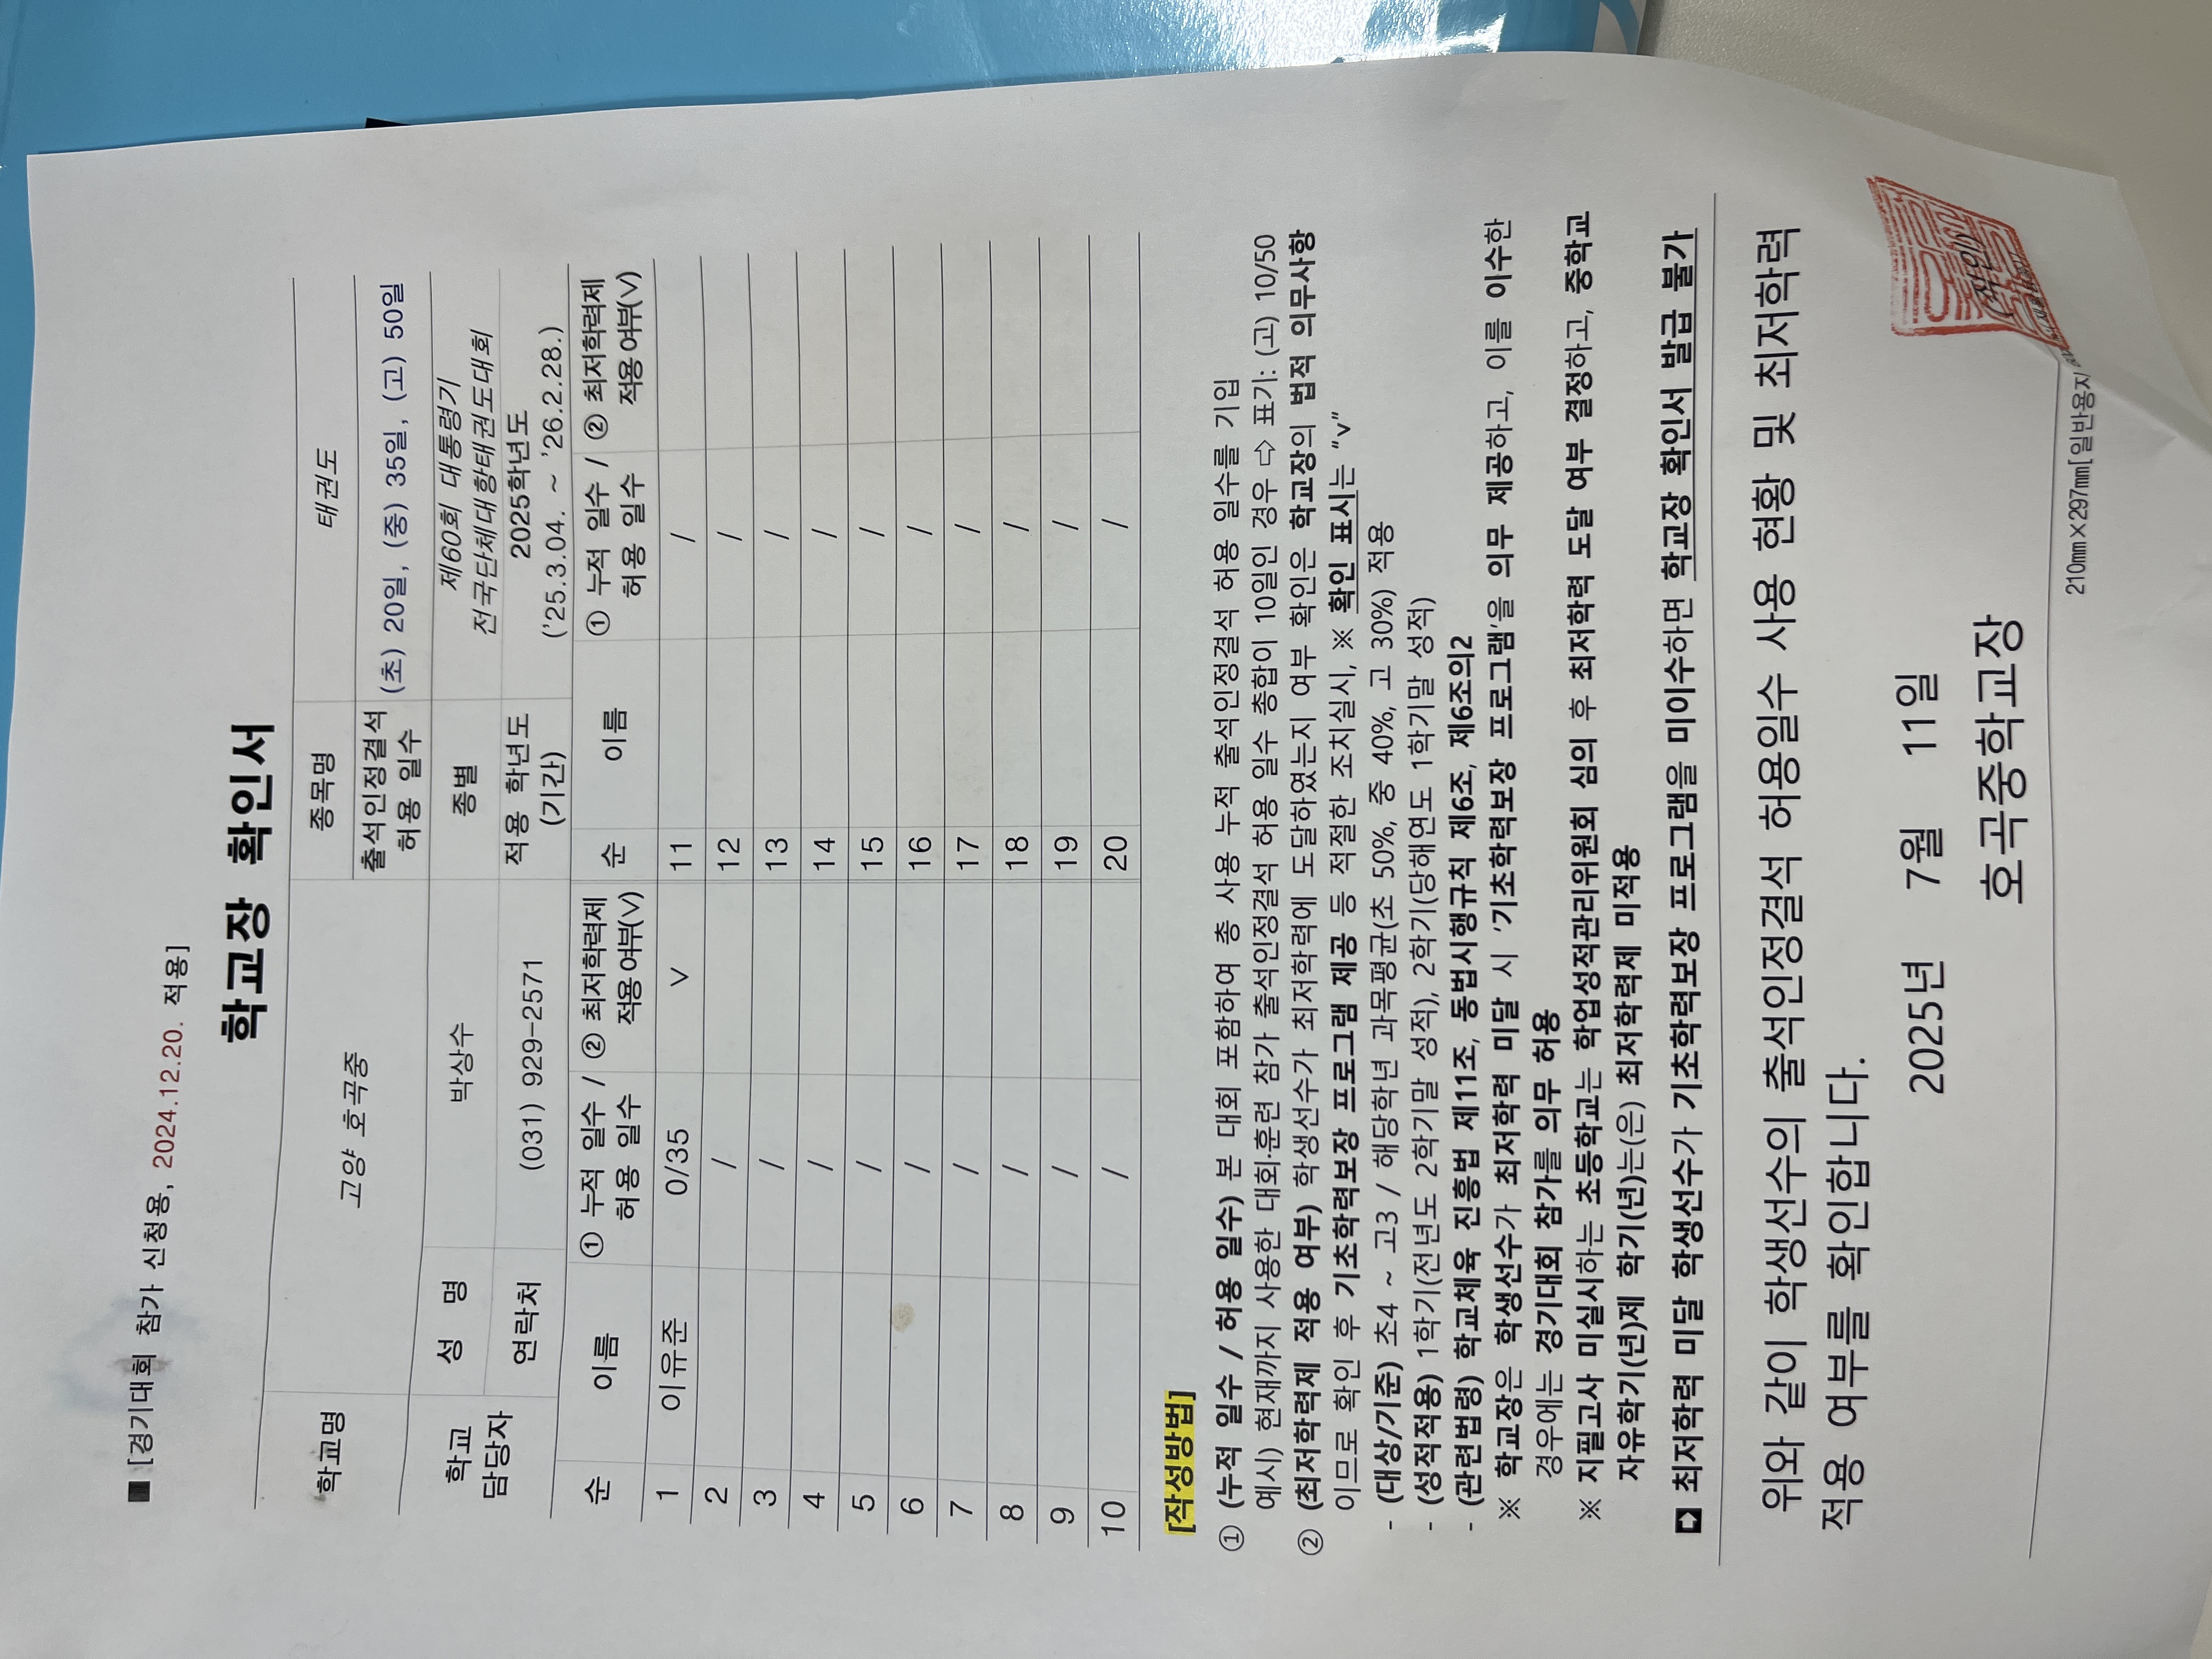 ■ [경기대회 참가 신청용, 2024.12.20. 적용]
학교장 확인서
학교명 고양 호곡중 종목명 태권도
출석인정결석 허용 일수 (초) 20일, (중) 35일, (고) 50일
학교 담당자 성 명 박상수 종별 제60회 대통령기 전국단체대항태권도대회
연락처 (031) 929-2571 적용 학년도 (기간) 2025학년도 ('25.3.04. ~ '26.2.28.)
순 이름 ① 누적 일수 / 허용 일수 ② 최저학력제 적용여부(∨) 순 이름 ① 누적 일수 / 허용 일수 ② 최저학력제 적용여부(∨)
1 이유준 0/35 ∨ 11 /
2 / 12 /
3 / 13 /
4 / 14 /
5 / 15 /
6 / 16 /
7 / 17 /
8 / 18 /
9 / 19 /
10 / 20 /
[작성방법]
① (누적 일수 / 허용 일수) 본 대회 포함하여 총 사용 누적 출석인정결석 허용 일수를 기입
예시) 현재까지 사용한 대회·훈련 참가 출석인정결석 허용 일수 총합이 10일인 경우 ⇨ 표기: (고) 10/50
② (최저학력제 적용 여부) 학생선수가 최저학력에 도달하였는지 여부 확인은 학교장의 법적 의무사항
이므로 확인 후 기초학력보장 프로그램 제공 등 적절한 조치실시, ※ 확인 표시는 "v"
- (대상/기준) 초4 ~ 고3 / 해당학년 과목평균(초 50%, 중 40%, 고 30%) 적용
- (성적적용) 1학기(전년도 2학기말 성적), 2학기(당해연도 1학기말 성적)
- (관련법령) 학교체육 진흥법 제11조, 동법시행규칙 제6조, 제6조의2
※ 학교장은 학생선수가 최저학력 미달 시 '기초학력보장 프로그램'을 의무 제공하고, 이를 이수한
경우에는 경기대회 참가를 의무 허용
※ 지필고사 미실시하는 초등학교는 학업성적관리위원회 심의 후 최저학력 도달 여부 결정하고, 중학교
자유학기(년)제 학기(년)는(은) 최저학력제 미적용
➡ 최저학력 미달 학생선수가 기초학력보장 프로그램을 미이수하면 학교장 확인서 발급 불가
위와 같이 학생선수의 출석인정결석 허용일수 사용 현황 및 최저학력
적용 여부를 확인합니다.
2025년 7월 11일
호곡중학교장 (직인)
210mm×297mm[일반용지